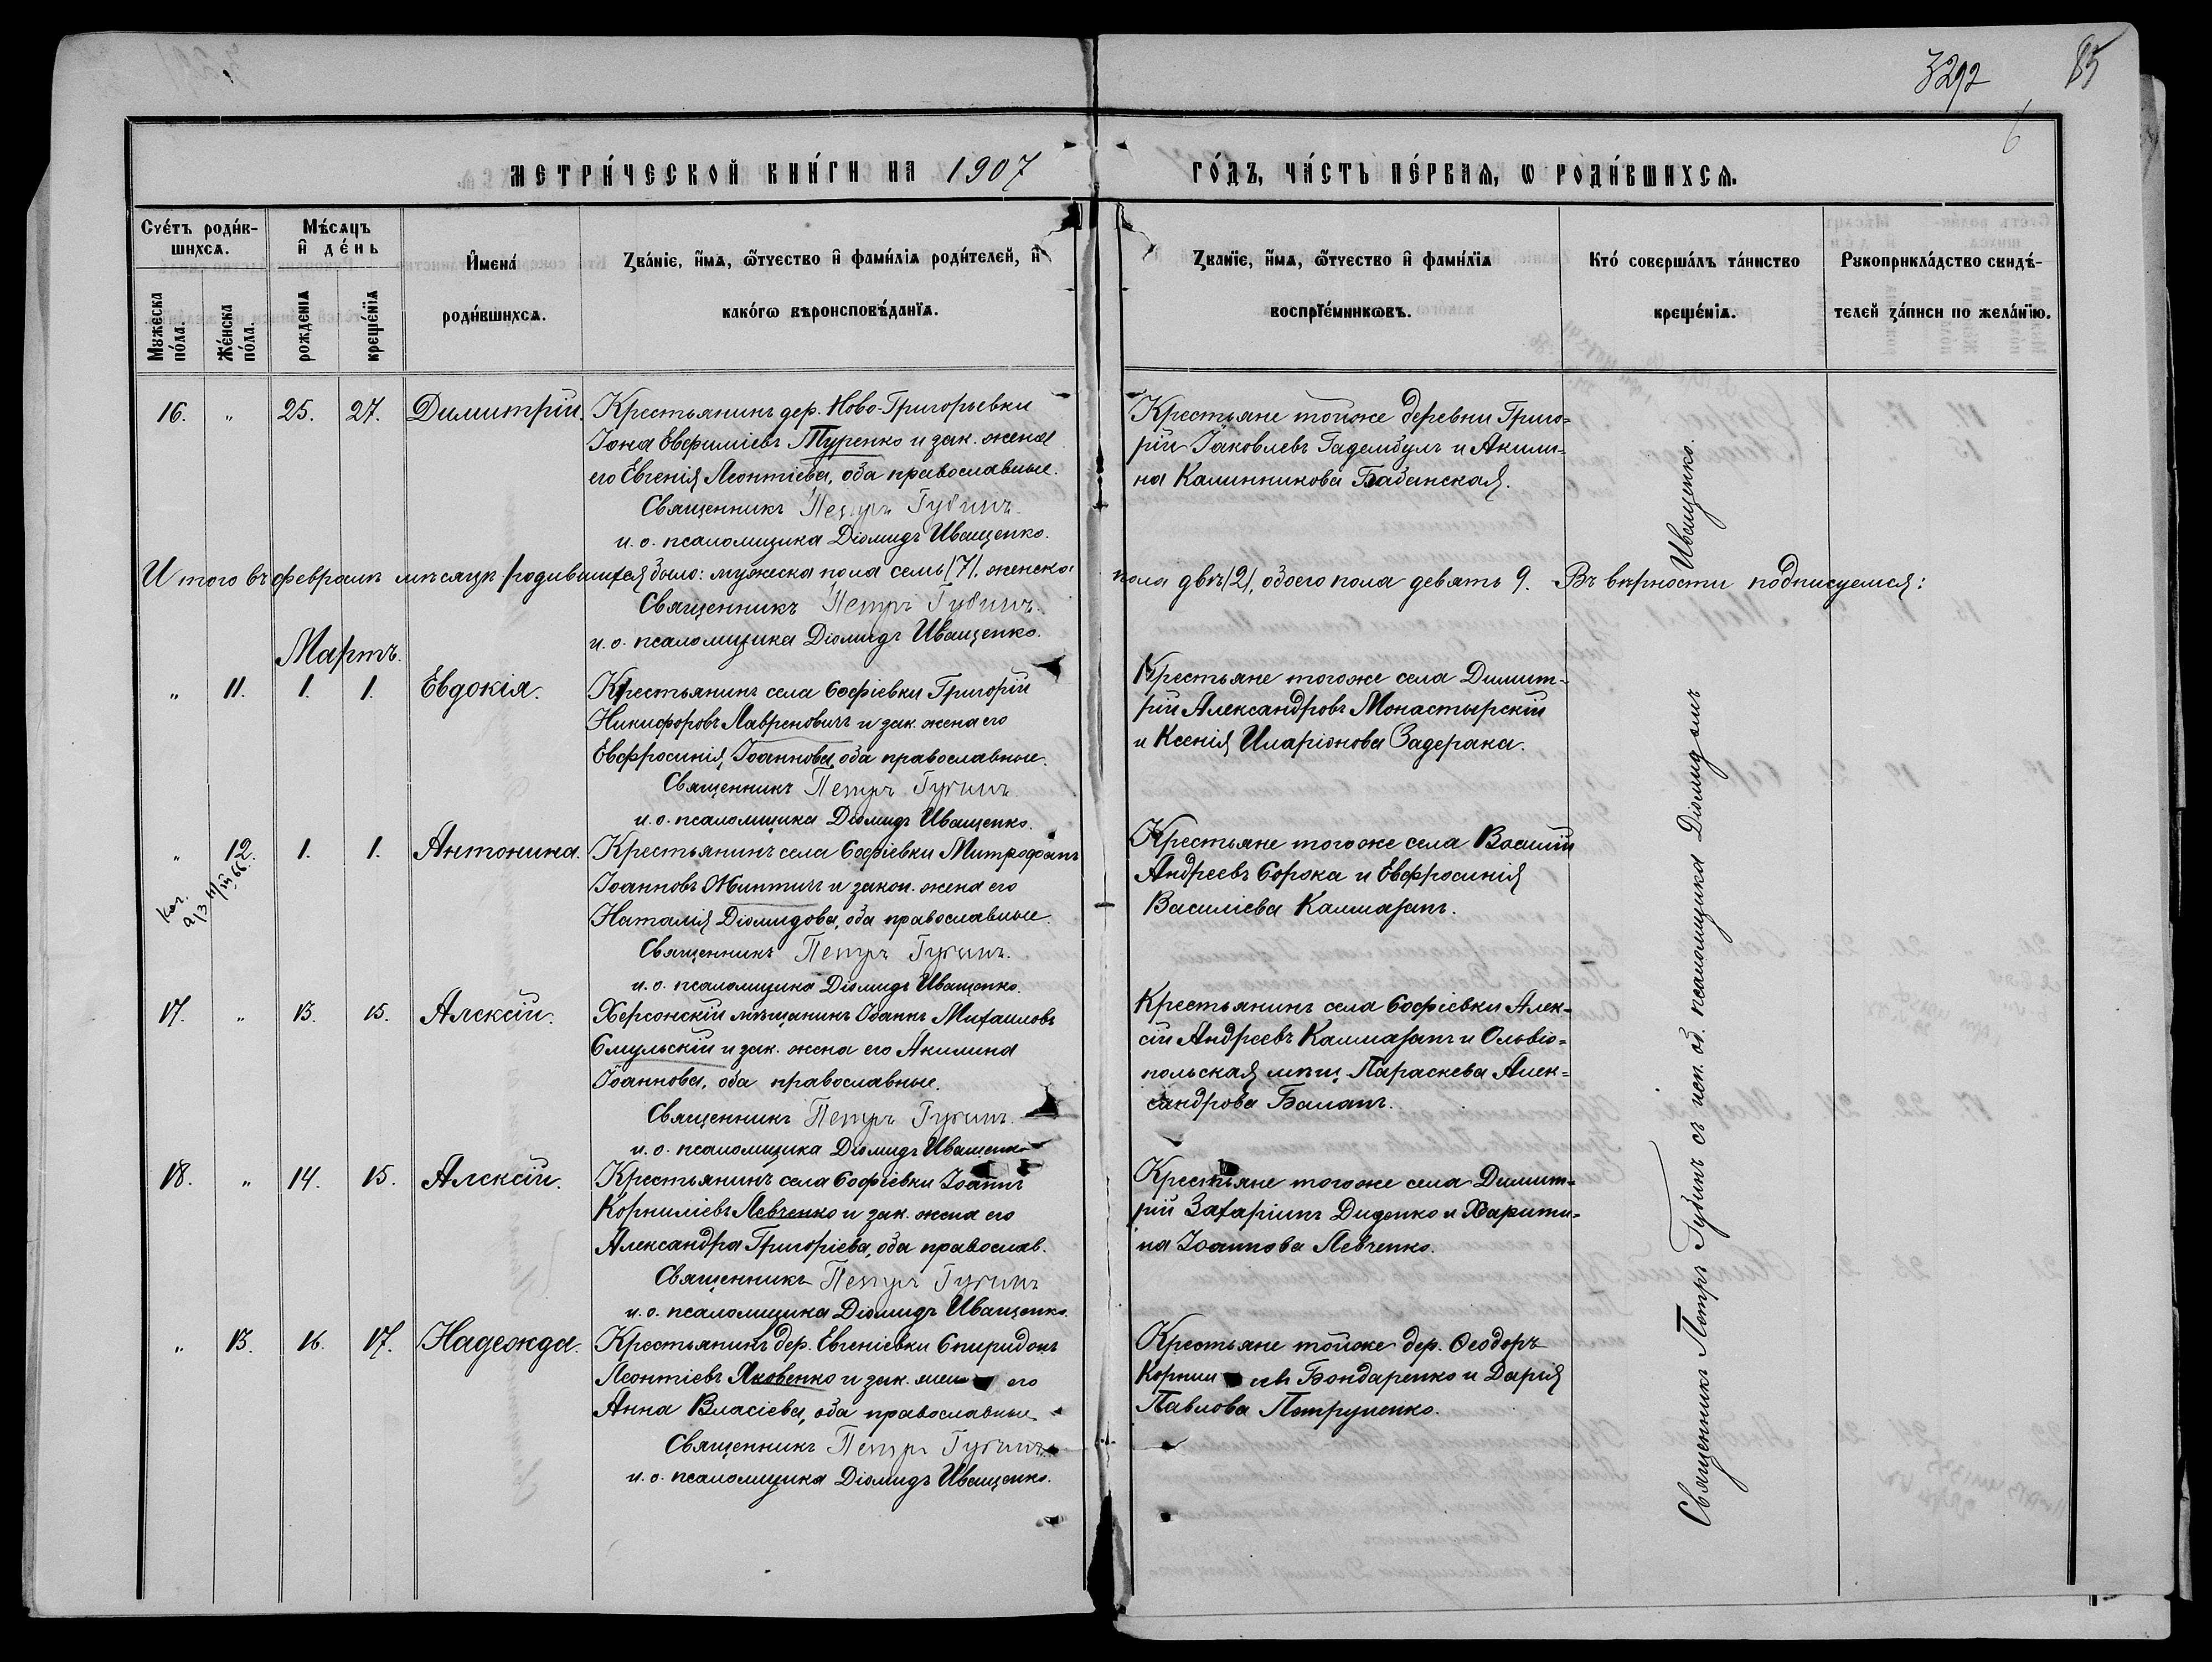 3292
85
6
МЕТРИ́ЧЕСКОЙ КНИ́ГИ НА 1907 ГО́ДЪ, ЧА́СТЬ ПЕ́РВАЯ, Ѡ РОДИ́ВШИХСЯ.
Сче́тъ роди́в-
шихся.
Мꙋжеска по́ла.
Же́нска по́ла.
Мѣ́сяцъ
и҆ де́нь
рожде́нїя
креще́нїя
И҆мена́
роди́вшихся.
Зва́нїе, и҆́мя, ѻ҆́тчество и҆ фами́лїя роди́телей, и҆
како́гѡ вѣроисповѣ́данїя.
Зва́нїе, и҆́мя, ѻ҆́тчество и҆ фами́лїя
воспрїе́мникѡвъ.
Кто́ соверша́лъ та́инство
креще́нїя.
Рꙋкоприкла́дство свидѣ́-
телей за́писи по жела́нїю.
16. " 25. 27. Димитрій.
Крестьянинъ дер. Ново-Григорьевки
Іона Евфиміевъ Туренко и зак. жена
его Евгенія Леонтіева, оба православные.
Священникъ Петръ Губинъ.
и. о. псаломщика Діомидъ Иващенко.
Крестьяне тойже деревни Григо-
рій Іаковлевъ Гадембулъ и Акили-
на Калинникова Бабанская.
Итого въ февралѣ мѣсяцѣ родившихся было: мужеска пола семь /7/, женска пола двѣ /2/, обоего пола девять 9. Въ вѣрности подписуемся:
Священникъ Петръ Губинъ.
и. о. псаломщика Діомидъ Иващенко.
Мартъ.
" 11. 1. 1. Евдокія.
Крестьянинъ села Софіевки Григорій
Никифоровъ Лавреновичъ и зак. жена его
Евфросинія Іоаннова, оба православные.
Священникъ Петръ Губинъ.
и. о. псаломщика Діомидъ Иващенко.
Крестьяне тогоже села Димит-
рій Александровъ Монастырскій
и Ксенія Иларіонова Задерака.
" 12. 1. 1. Антонина.
Крестьянинъ села Софіевки Митрофанъ
Іоанновъ Житничъ и закон. жена его
Наталія Діомидова, оба православные.
Священникъ Петръ Губинъ.
и. о. псаломщика Діомидъ Иващенко.
Крестьяне тогоже села Василій
Андреевъ Сорока и Евфросинія
Василіева Калмазанъ.
17. " 13. 15. Алексій.
Херсонскій мѣщанинъ Іоаннъ Михаиловъ
Смульскій и зак. жена его Акилина
Іоаннова, оба православные.
Священникъ Петръ Губинъ.
и. о. псаломщика Діомидъ Иващенко
Крестьянинъ села Софіевки Алек-
сій Андреевъ Калмазанъ и Ольвіо-
польская мѣщ. Параскева Алек-
сандрова Баланъ.
18. " 14. 15. Алексій.
Крестьянинъ села Софіевки Іоаннъ
Корниліевъ Левченко и зак. жена его
Александра Григоріева, оба православ.
Священникъ Петръ Губинъ
и. о. псаломщика Діомидъ Иващенко.
Крестьяне тогоже села Димит-
рій Захаріинъ Диденко и Харити-
на Іоаннова Левченко.
" 13. 16. 17. Надежда.
Крестьянинъ дер. Евгеніевки Спиридонъ
Леонтіевъ Яковенко и зак. его
Анна Власіева, оба православные.
Священникъ Петръ Губинъ.
и. о. псаломщика Діомидъ Иващенко.
Крестьяне тойже дер. Ѳеодоръ
Корниліевъ Бондаренко и Дарія
Павлова Петрупенко.
Священникъ Петръ Губинъ съ исп. об. псаломщика Діомидомъ Иващенко.